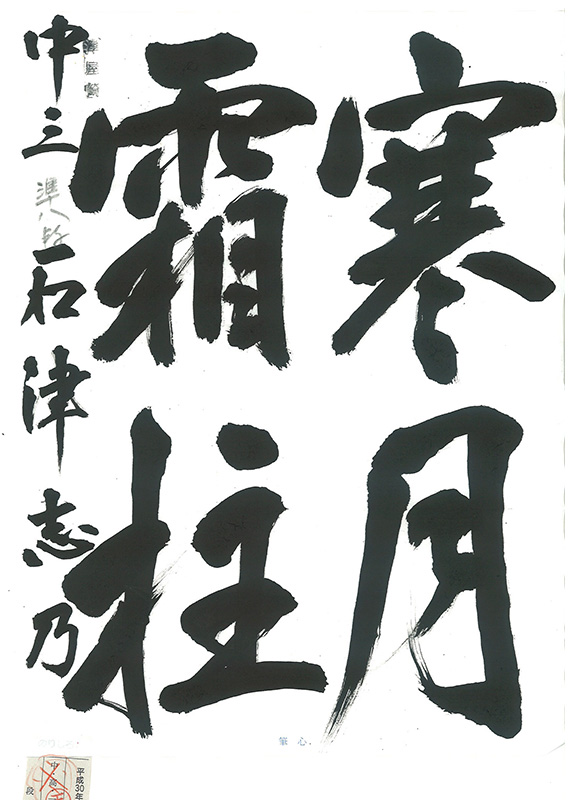 寒月
霜柱
中三 準八段 石津志乃
心筆
平成30年
中
段